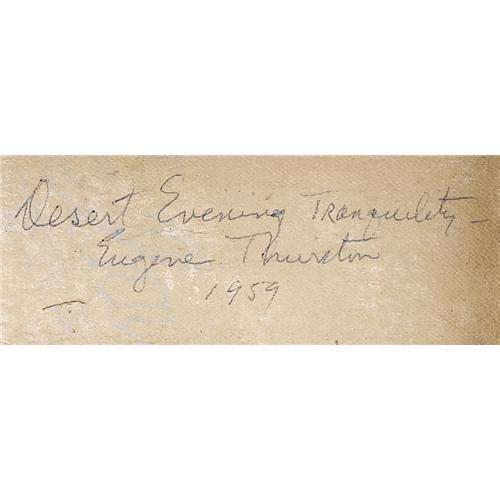 Desert Evening Tranquility –
Eugene Thurston
1959